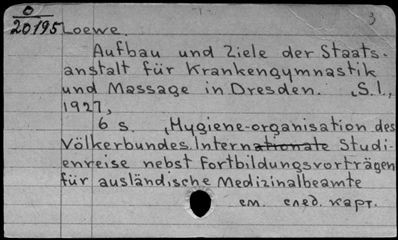 О
20195 Loewe.
3
Aufbau und Ziele der Staats-
anstalt für Krankengymnastik
und Massage in Dresden. S.l.,
1927,
6 s. „Hygiene-organisation des
Völkerbundes. Internationate Studi-
enreise nebst Fortbildungsvorträgen
für ausländische Medizinalbeamte
см. след. карт.